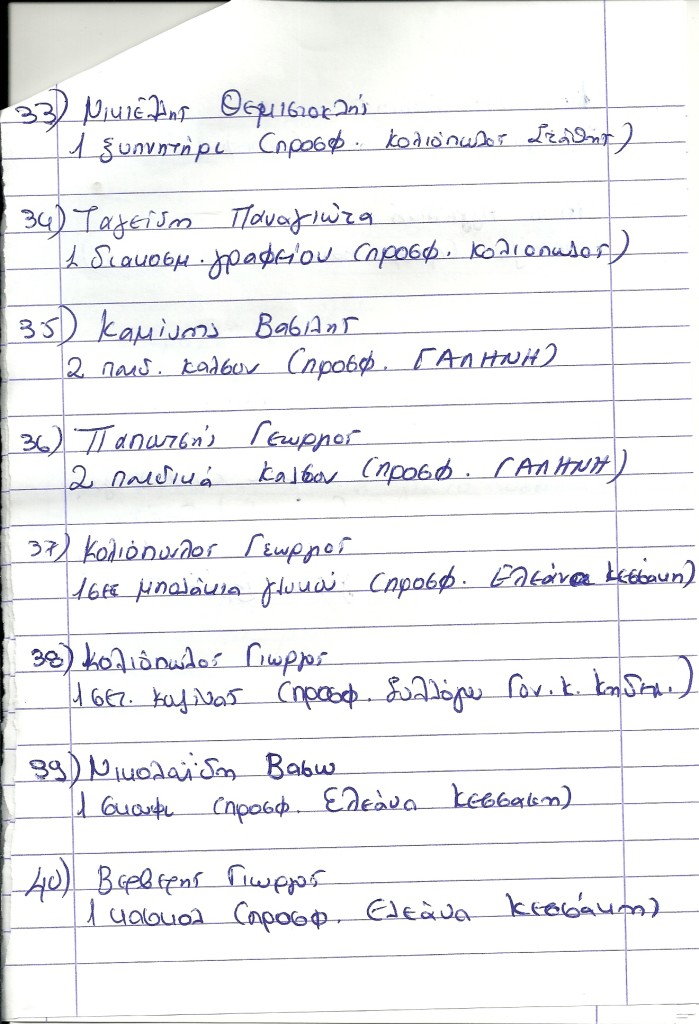 33) Νικιέλης Θεμιστοκλής
1 ξυπνητήρι (προσφ. Κολιόπουλος Στάθης)
34) Ταγείδη Παναγιώτα
1 διακοσμ. γραφείου (προσφ. Κολιοπουλος)
35) Καμίνης Βασιλης
2 παιδ. καλσον (προσφ. ΓΑΛΗΝΗ)
36) Γεωργιος
2 παιδικά καλσον (προσφ. ΓΑΛΗΝΗ)
37) Κολιόπουλος Γεωργιος
1 σετ μπολάκια γλυκού (προσφ. Ελεάνα Κεσσάκη)
38) Κολιόπουλος Γιωργος
1 σετ. κουζίνας (προσφ. Συλλόγου Γον. κ. Κηδεμ.)
39) Νικολαΐδη Βασω
1 (προσφ. Ελεάνα Κεσσακη)
40) Βερβερης Γιωργος
1 κασκολ (προσφ. Ελεάνα Κεσσάκη)